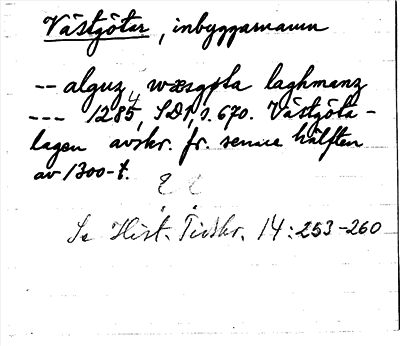 Västgötar, inbyggarnamn
-- alguz wæsgøta laghmanz
--- 1285, SD 1, s. 670. Västgöta-
lagen avskr. fr. senare hälften
av 1300-t.
Se Hist. Tidskr. 14: 253-260